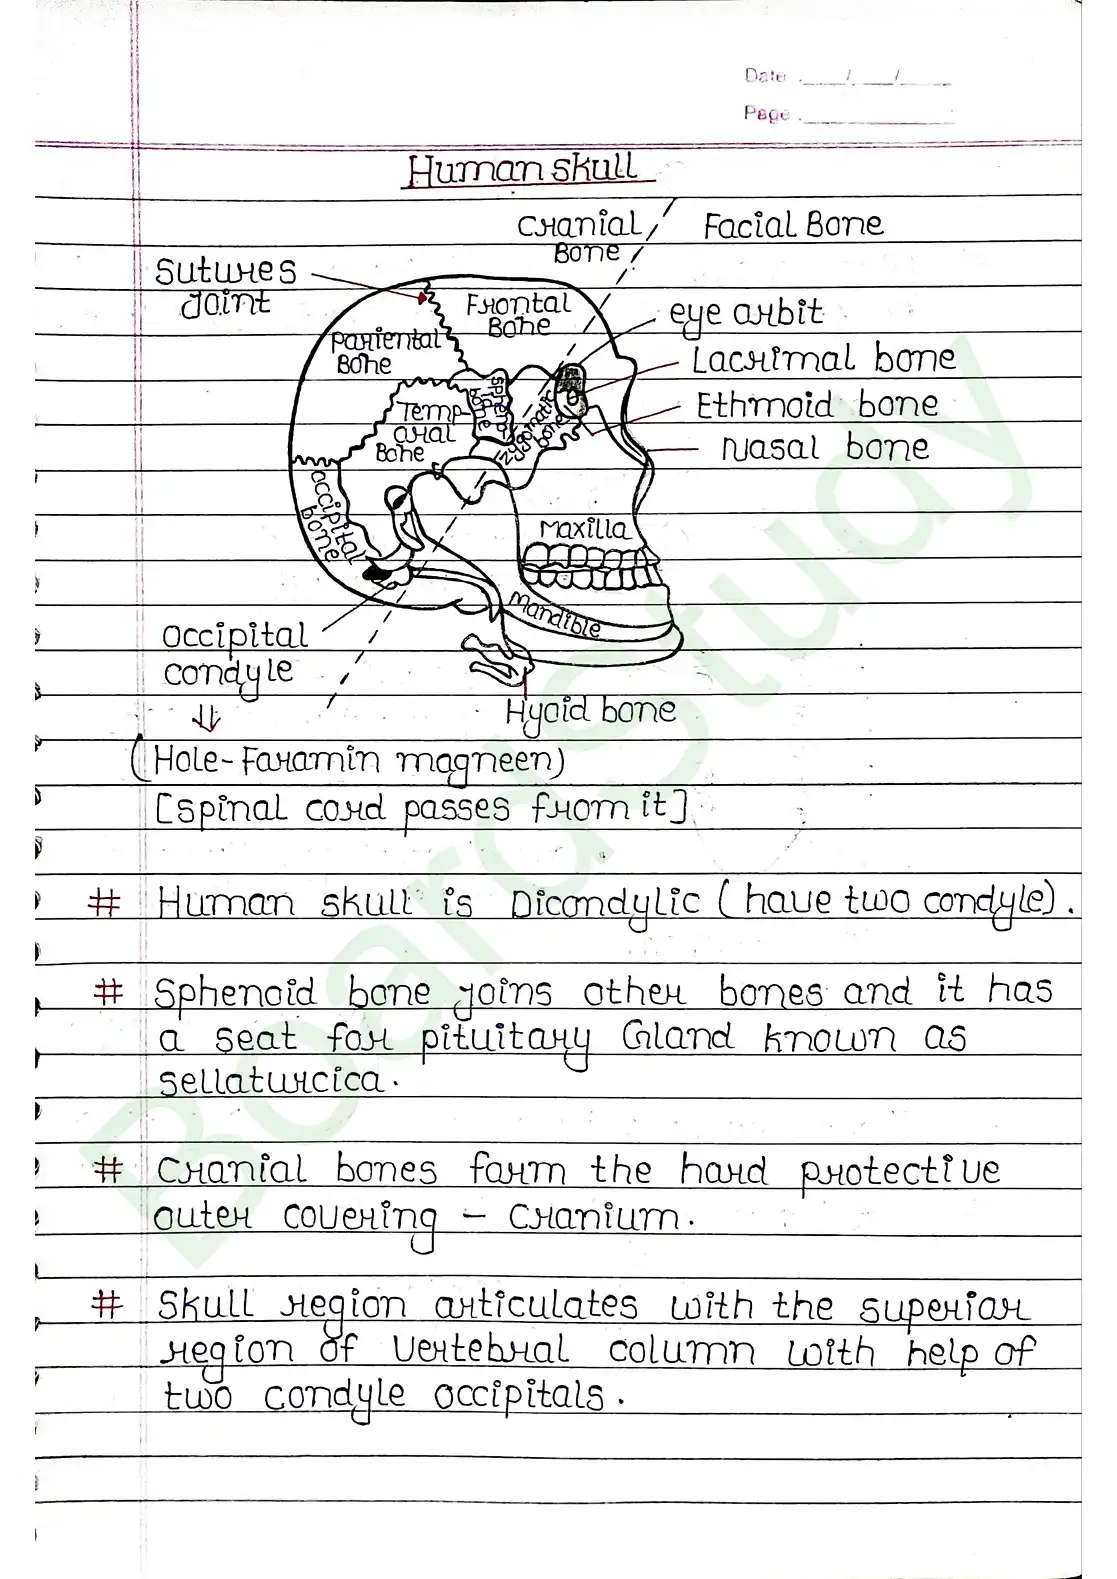 Date : ___/___/___
Page : ___________
Human skull
Cranial Bone
Facial Bone
Sutures Joint
Frontal Bone
Pariental Bone
eye orbit
Lacrimal bone
Ethmoid bone
Nasal bone
Sphenoid bone
Zygomatic bone
Temporal Bone
Occipital bone
Maxilla
Mandible
Occipital condyle
Hyoid bone
(Hole-Foramin magneen)
[Spinal cord passes from it]
# Human skull is Dicondylic (have two condyle).
# Sphenoid bone joins other bones and it has
a seat for pituitary Gland known as
sellaturcica.
# Cranial bones form the hard protective
outer covering – Cranium.
# Skull region articulates with the superior
region of vertebral column with help of
two condyle occipitals.
BoardStudy